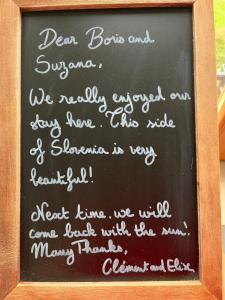 Dear Boris and
Suzana,
We really enjoyed our
stay here. This side
of Slovenia is very
beautiful!
Next time, we will
come back with the sun!
Many Thanks,
Clément and Elise